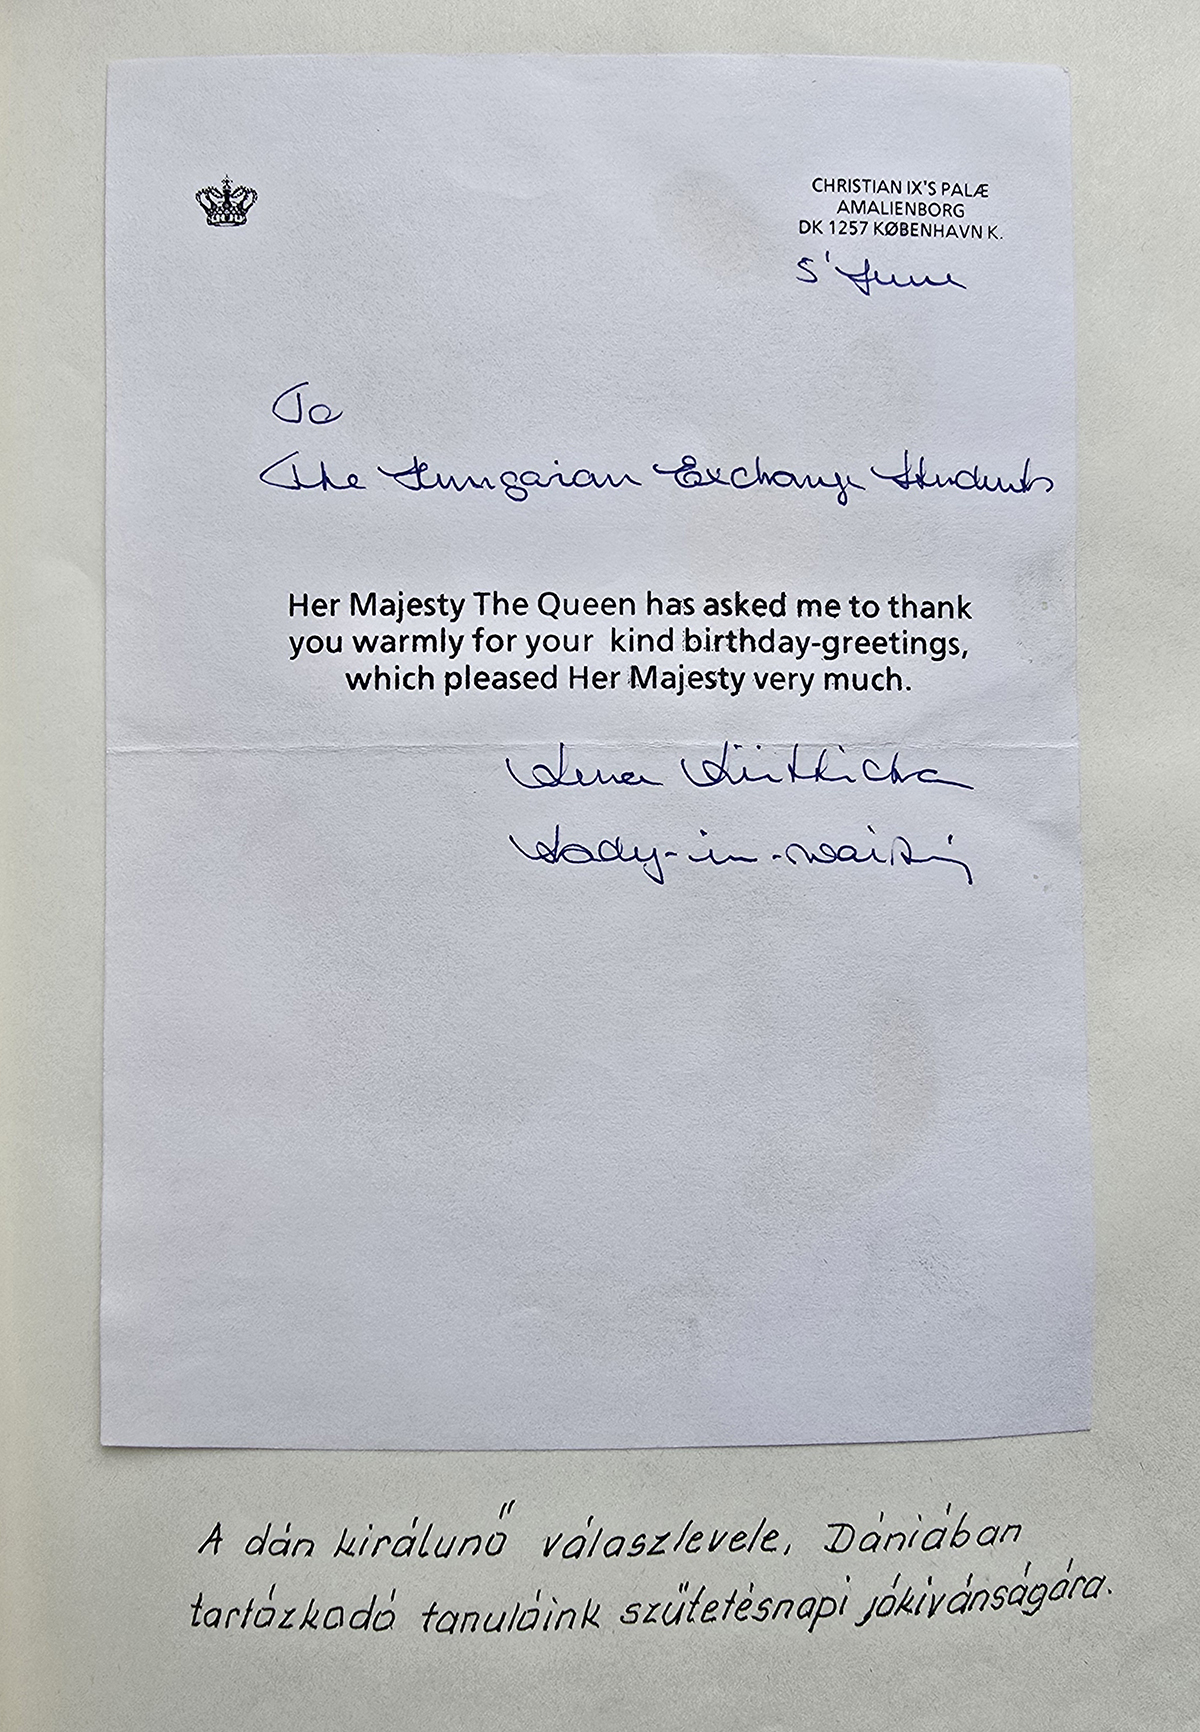 CHRISTIAN IX'S PALÆ
AMALIENBORG
DK 1257 KØBENHAVN K.
5' June
To
The Hungarian Exchange Students
Her Majesty The Queen has asked me to thank
you warmly for your kind birthday-greetings,
which pleased Her Majesty very much.
Lady-in-waiting
A dán királunő válaszlevele, Dániában
tartózkodó tanulóink szűtetésnapi jókivánságára.